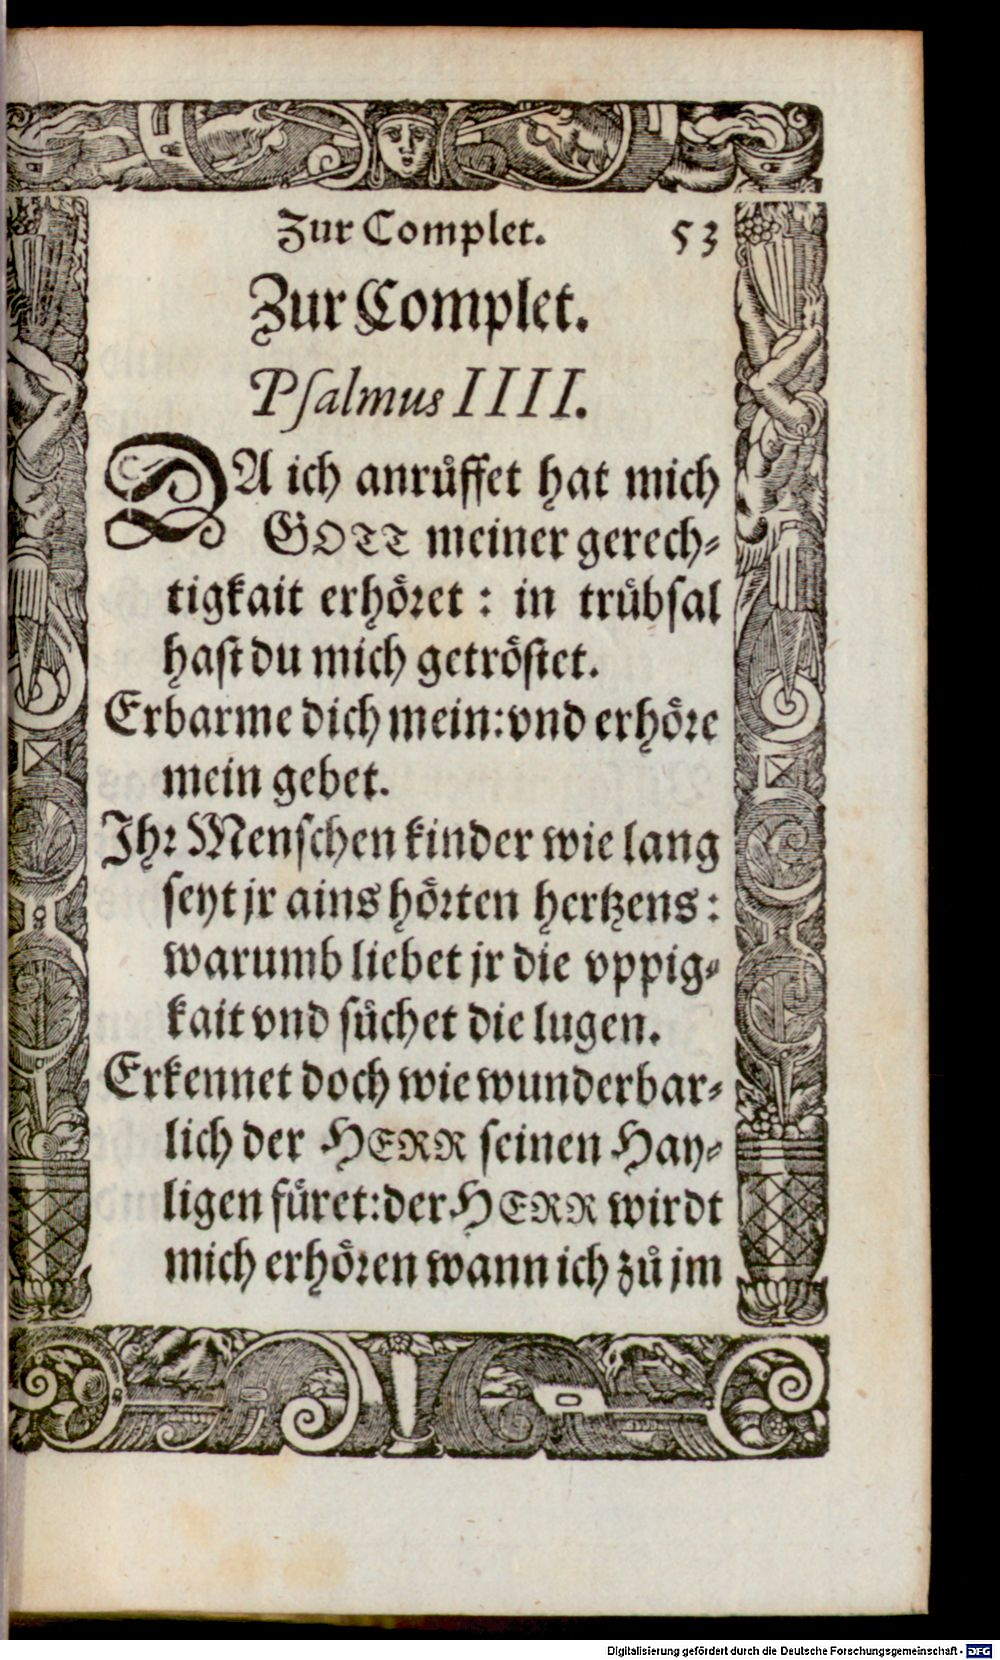 Zur Complet. 53
Zur Complet.
Pſalmus IIII.
DA ich anrůffet hat mich
GOTT meiner gerech⸗
tigkait erhöꝛet : in trůbſal
haſt du mich getröſtet.
Erbarme dich mein: vnd erhöꝛe
mein gebet.
Ihꝛ Menſchen kinder wie lang
ſeyt jr ains höꝛten hertzens :
warumb liebet jr die vppig⸗
kait vnd ſůchet die lugen.
Erkennet doch wie wunderbar⸗
lich der HERR ſeinen Hay⸗
ligen füret: der HERR wirdt
mich erhöꝛen wann ich zů jm
Digitalisierung gefördert durch die Deutsche Forschungsgemeinschaft - DFG